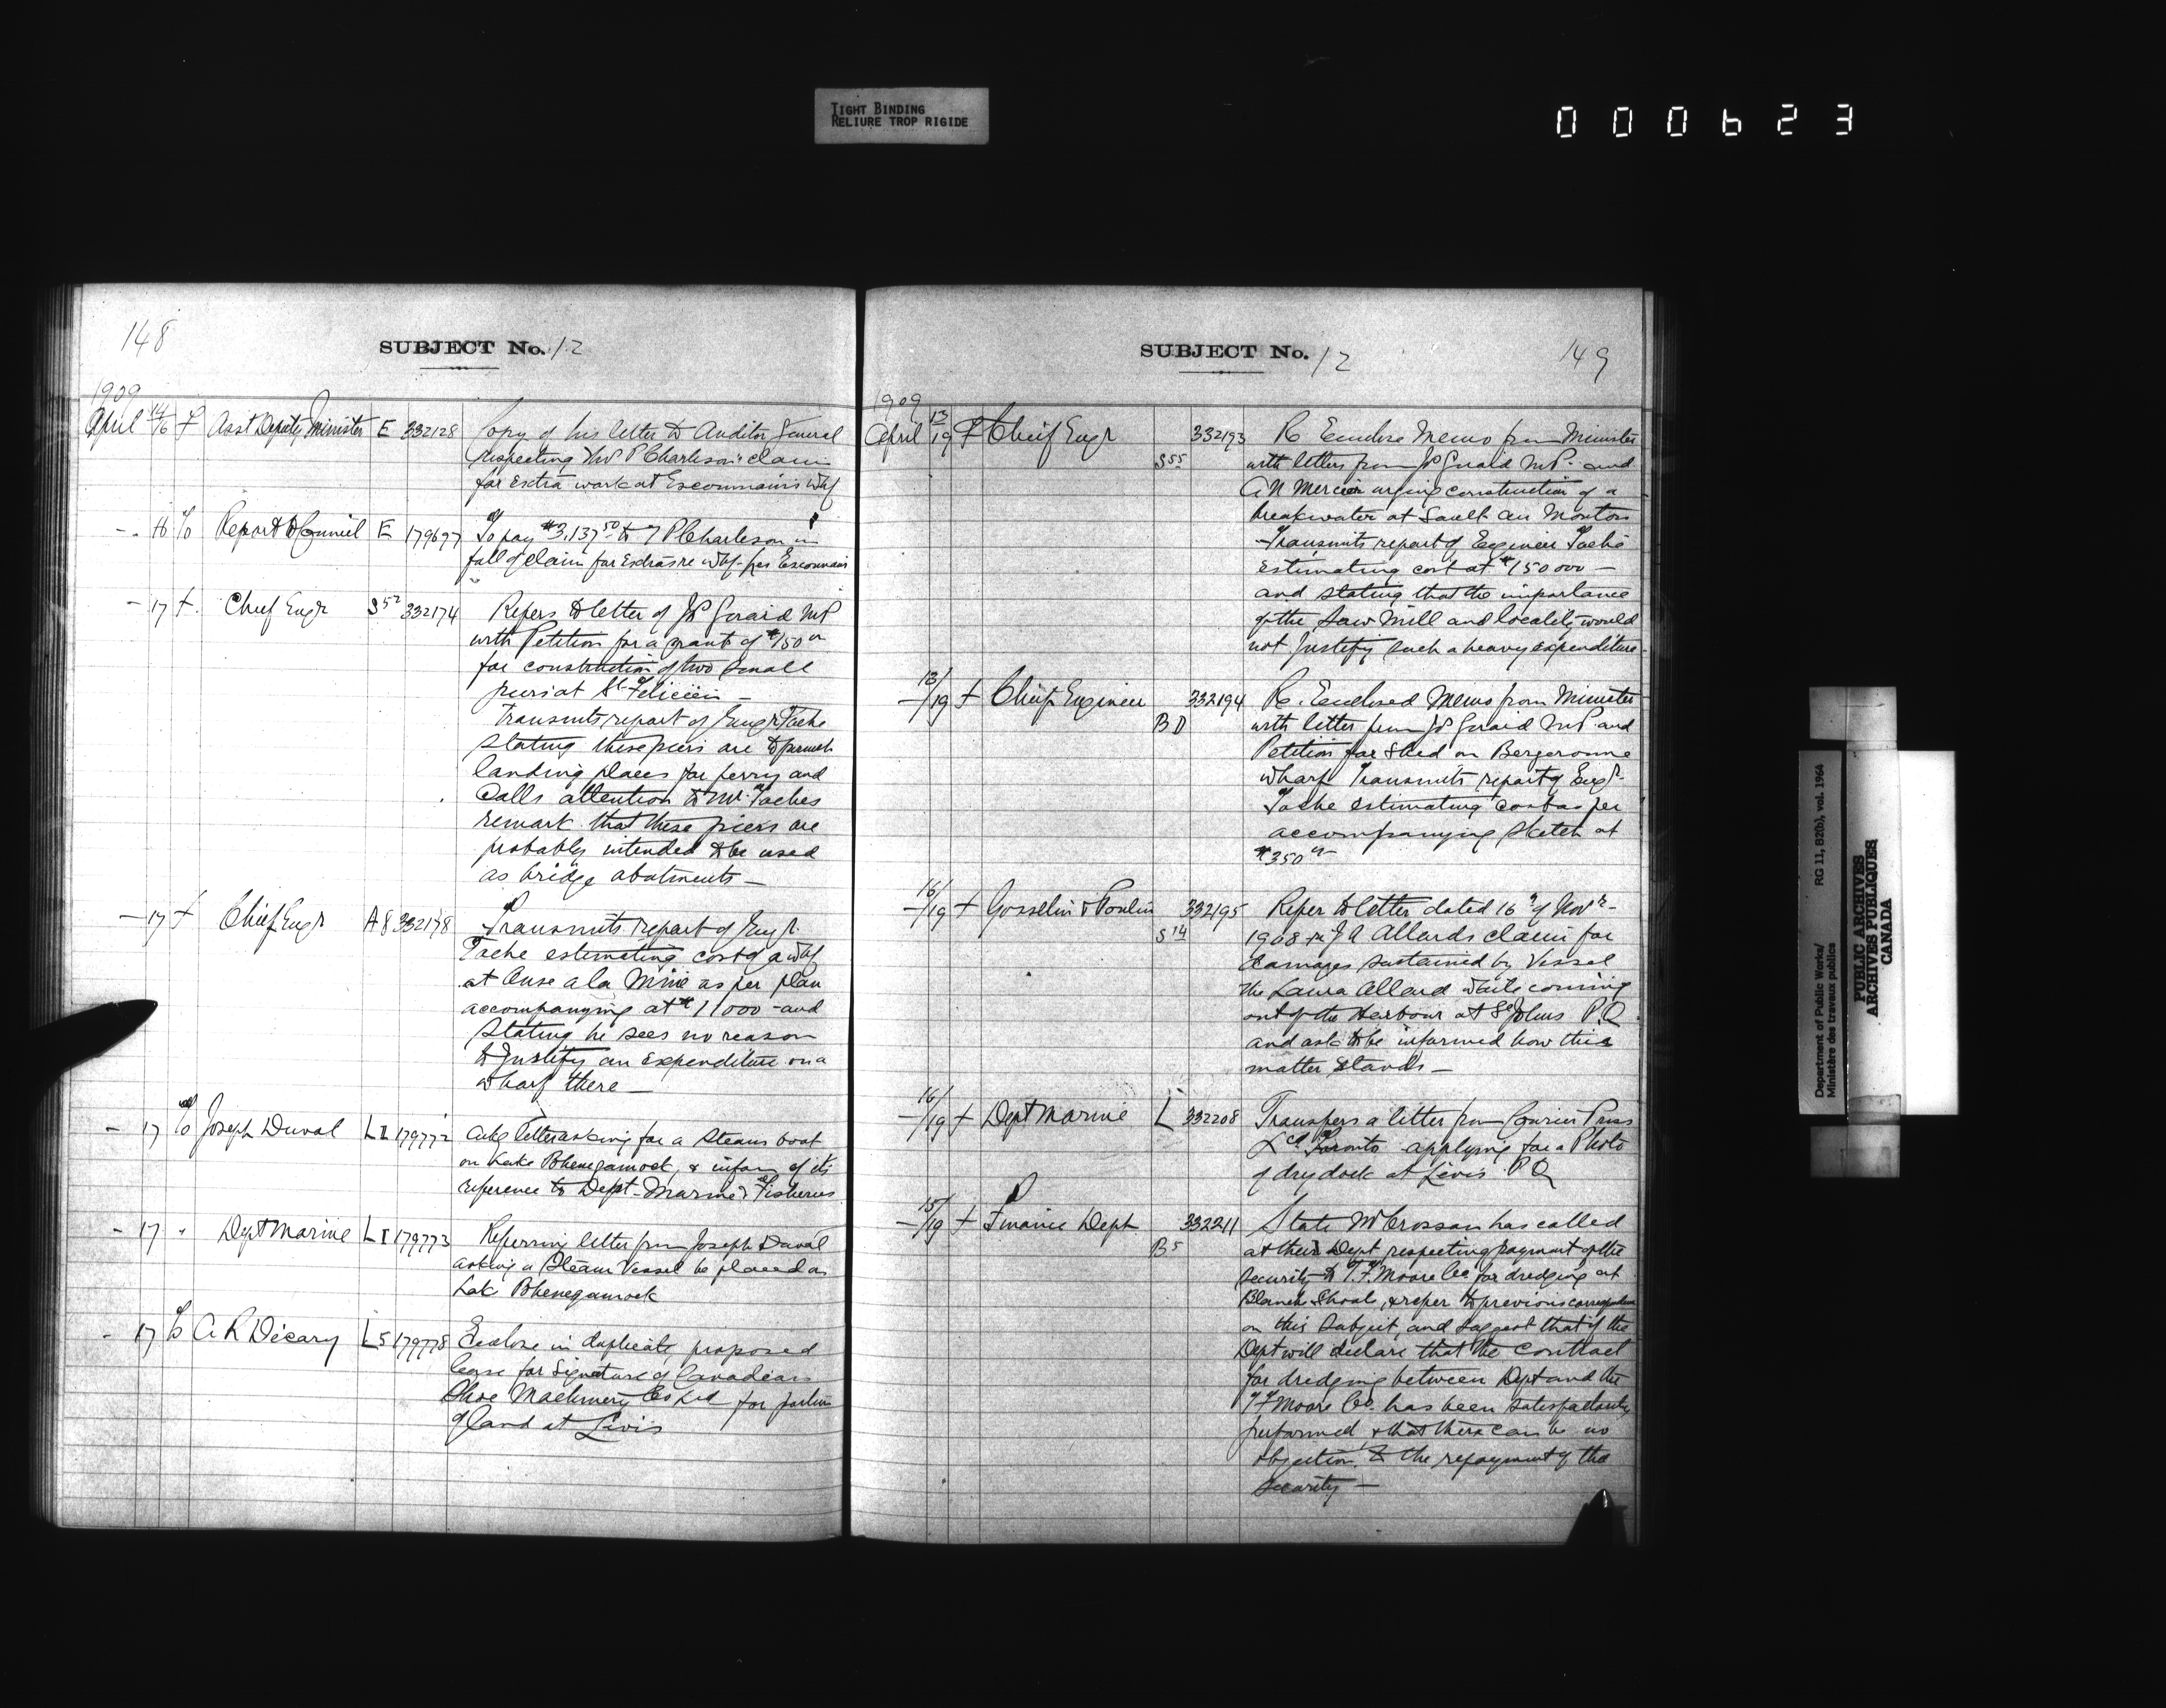 TIGHT BINDING
RELIURE TROP RIGIDE
000623
148
SUBJECT No. 12
1909
April 14/16 f Asst Deputy Minister E 332128 Copy of his letter to Auditor General
respecting Mr P Charleson's claim
for extra work at Escoumains Whf
- 16 o/o Report to Council E 179697 To pay $3,137.50 to P Charleson in
full of claim for extras re Whf Escoumains
- 17 f. Chief Engr S52 332174 Refers to letter of J Girard MP
with Petition for a grant of $150
for construction of two small
piers at St Felicien -
Transmits report of Engr Tache
stating these piers are to furnish
landing places for ferry and
Calls attention to Mr Taches
remark that these piers are
probably intended to be used
as bridge abutments -
- 17 f Chief Engr A8 332178 Transmits report of Engr.
Tache estimating cost of a Whf
at Anse a la Mine as per plan
accompanying at $11000 - and
stating he sees no reason
to Justify an expenditure on a
Wharf there -
- 17 o/o Joseph Duval LI 179772 Ackg letter asking for a Steam boat
on Lake Pohenegamook, & inform of its
reference to Dept - Marine & Fisheries
- 17 " Dept Marine LI 179773 Referring letter from Joseph Duval
asking a Steam Vessel be placed on
Lake Pohenegamook
- 17 o/o A R Décary L5 179778 Enclose in duplicate, proposed
lease for signature of Canadian
Shoe Machinery Co Ltd for portion
of land at Levis
SUBJECT No. 12
149
1909
April 13/19 f Chief Engr 332193 Re Enclose Memo from Minister
S55 with letters from J Girard M.P. and
A N Mercier urging construction of a
breakwater at Sault au Mouton
Transmits report of Engineer Taché
estimating cost at $150000 -
and stating that the importance
of the Saw Mill and locality would
not justify such a heavy expenditure -
- 13/19 f Chief Engineer 332194 Re. Enclosed Memo from Minister
B D with letter from J Girard M.P. and
Petition for Shed on Bergeronne
Wharf Transmits report of Engr.
Tache estimating cost as per
accompanying sketch at
$350
- 16/19 f Gosselin & Poulin 332195 Refer to letter dated 16th of Novr -
S14 1908 re J A Allards claim for
damages sustained by Vessel
the Laura Allard while coming
out of the Harbour at St Johns P.Q.
and ask to be informed how this
matter stands -
- 16/19 f Dept Marine L 332208 Transfers a letter from Courier Press
Ld Toronto applying for a Photo
of dry dock at Levis P.Q
- 15/19 f Finance Dept 332211 State McCrossan has called
B5 at their Dept respecting payment of the
security to T. F. Moore Co for dredging at
Shoal, & refer to previous correspondence
on this subject, and suggest that if the
Dept will declare that the contract
for dredging between Dept and the
T F Moore Co. has been satisfactorily
performed & that there can be no
objection to the repayment of the
security -
Department of Public Works/
Ministère des travaux publics
RG 11, B2(b), vol. 1964
PUBLIC ARCHIVES
ARCHIVES PUBLIQUES
CANADA